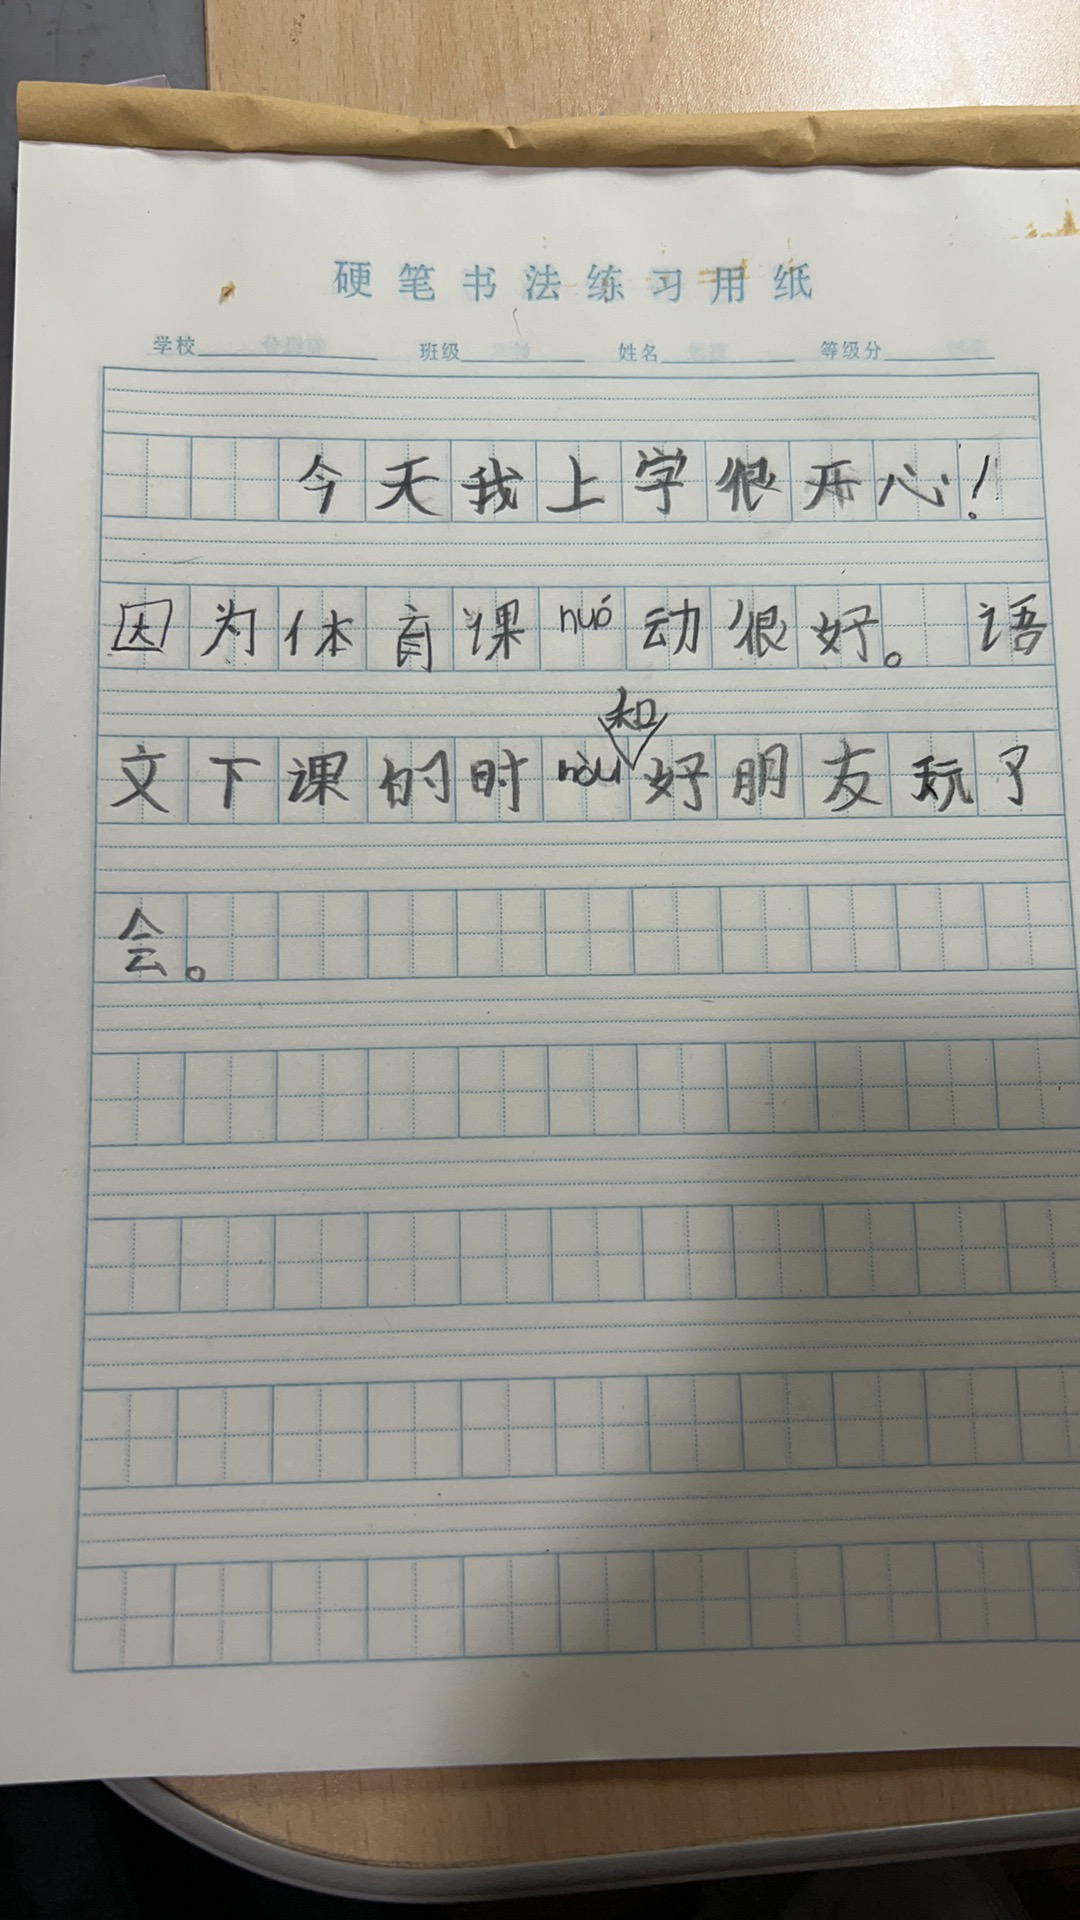 硬笔书法练习用纸
学校 班级 姓名 等级分
今天我上学很开心!
因为体育课nuó动很好。语
文下课的时 和好朋友玩了
会。